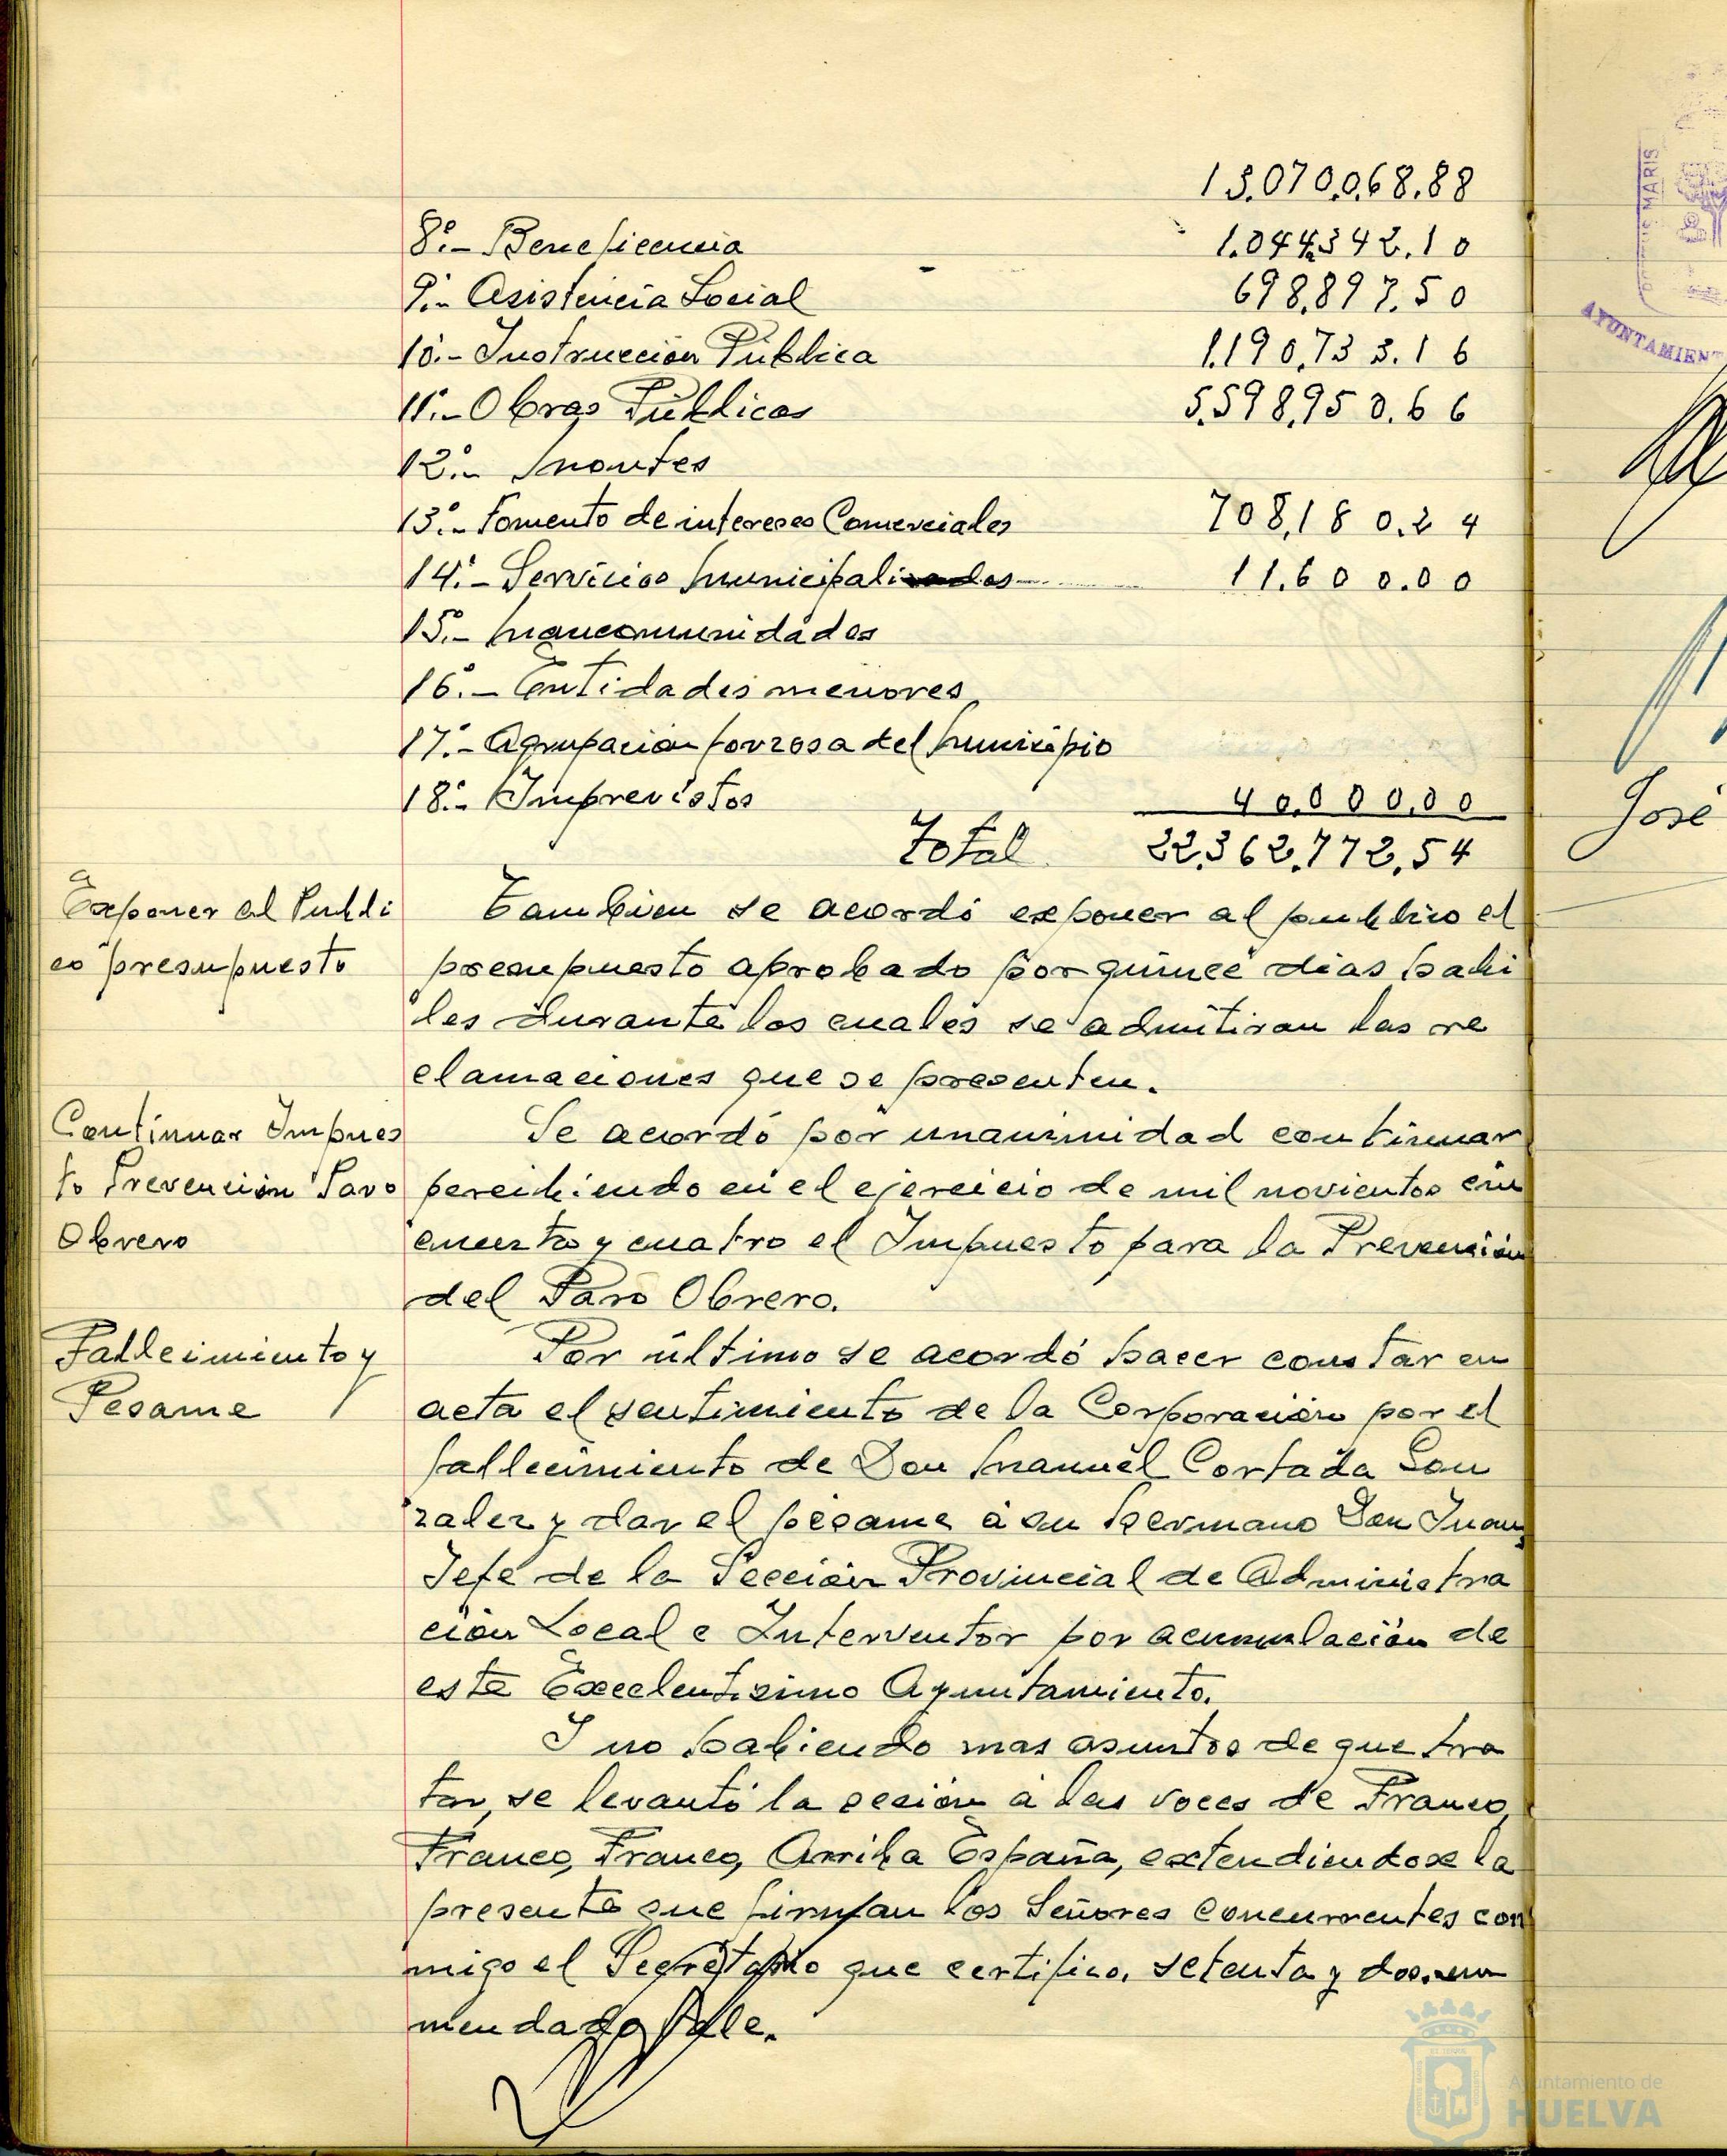 13.070.068.88
8º.- Beneficencia 1.044.342.10
9º.- Asistencia Social 698.897.50
10º.- Instruccion Pública 1.190.733.16
11º.- Obras Públicas 5.598.950.66
12º.- Montes
13º.- Fomento de intereses Comerciales 708.180.24
14º.- Servicios Municipalizados 11.600.00
15º.- Mancomunidades
16º.- Entidades menores
17º.- Agrupacion forzosa del Municipio
18º.- Imprevistos 40.000.00
Total 22.362.772.54
Exponer al Publi
co presupuesto
Tambien se acordó exponer al publico el
presupuesto aprobado por quince dias habi
les durante los cuales se admitiran las re
clamaciones que se presenten.
Continuar Impues
to Prevención Paro
Obrero
Se acordó por unanimidad continuar
percibiendo en el ejercicio de mil novientos cin
cuenta y cuatro el Impuesto para la Prevención
del Paro Obrero.
Fallecimiento y
Pesame
Por último se acordó hacer constar en
acta el sentimiento de la Corporación por el
fallecimiento de Don Manuel Cortada Gon
zalez y dar el pésame a su hermano Don Juan,
Jefe de la Sección Provincial de Administra
ción Local e Interventor por acumulación de
este Excelentisimo Ayuntamiento.
I no habiendo mas asuntos de que tra
tar, se levantó la sesión a las voces de Franco,
Franco, Franco, Arriba España, extendiendose la
presente que firman los Señores concurrentes con
migo el Secretario que certifico. setenta y dos. en
mendado Vale.
MARIS
AYUNTAMIENT
José
Ayuntamiento de
HUELVA